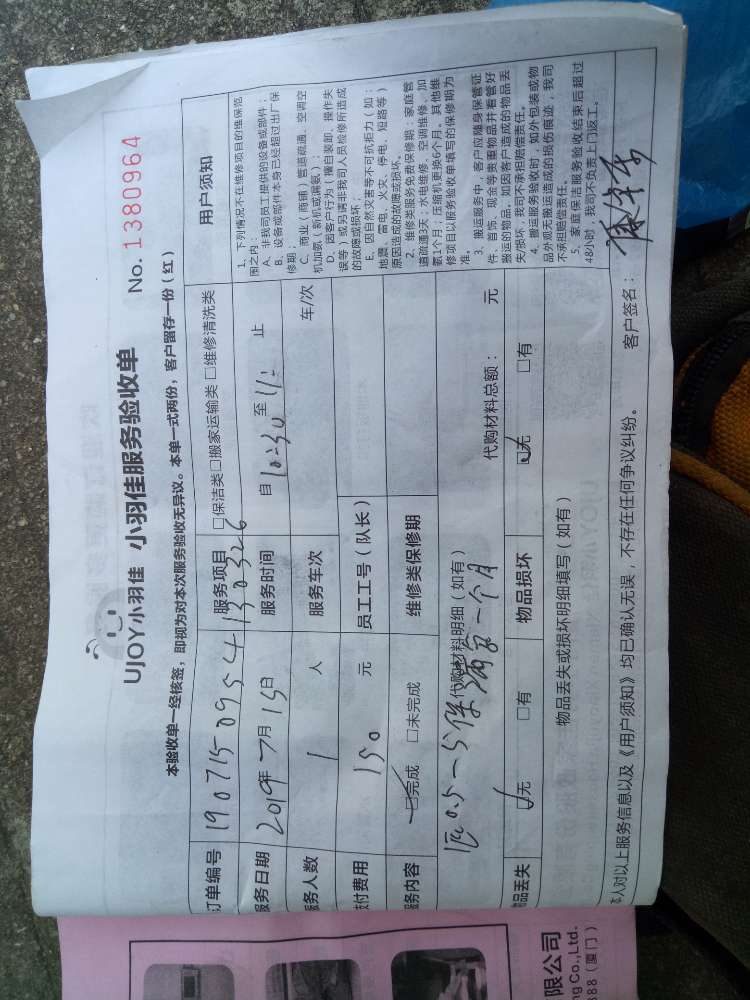 UJOY小羽佳 小羽佳服务验收单 No. 1380964
本验收单一经核签，即视为对本次服务验收无异议。本单一式两份，客户留存一份（红）
订单编号 190715095413 0326 服务项目 □保洁类□搬家运输类 □维修清洗类
服务日期 2019年7月15日 服务时间 自 10:30 至 11: 止
服务人数 1 人 服务车次 车/次
付费用 150 元 员工工号（队长）
服务内容 完成 □未完成 维修类保修期
代购材料明细（如有） 代购材料总额： 元
满 一个月
物品丢失 无 □有 物品损坏 无 □有
物品丢失或损坏明细填写（如有）
本人对以上服务信息以及《用户须知》均已确认无误，不存在任何争议纠纷。 客户签名：
用户须知
1、下列情况不在维修项目的维保范
围之内：
A、非我司员工提供的设备或部件；
B、设备或部件本身已经超过出厂保
修期；
C、商业（商铺）管道疏通、空调空
机加氨（新机或漏氨）；
D、因客户行为（擅自装卸、操作失
误等）或另请非我司人员检修所造成
的故障或损坏；
E、因自然灾害等不可抗拒力（如：
地震、雷电、火灾、停电、短路等）
原因造成的故障或损坏。
2、维修类服务免费保修期：家庭管
道疏通3天；水电维修、空调维修、加
氨1个月；压缩机更换6个月，其他维
修项目以服务验收单填写的保修期为
准。
3、搬运服务中，客户应随身保管证
件、首饰、现金等贵重物品并看管好
搬运的物品，如因客户造成的物品丢
失/损坏，我司不承担赔偿责任。
4、搬运服务验收前，如外包装或物
品外观无搬运造成的损伤痕迹，我司
不承担赔偿责任。
5、家庭保洁服务验收结束后超过
48小时，我司不负责上门返工。
限公司
ng Co.,Ltd.
088（厦门）